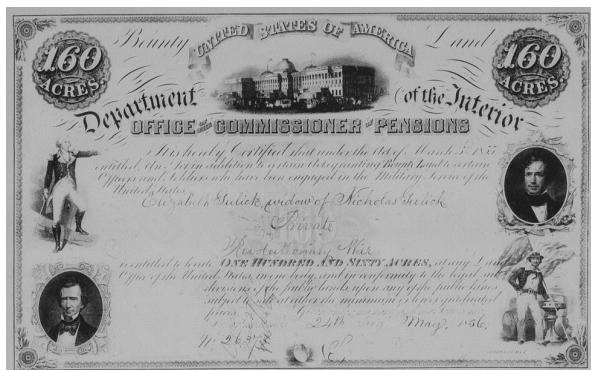 160 ACRES
Bounty Land
UNITED STATES OF AMERICA
160 ACRES
Department of the Interior
OFFICE OF THE COMMISSIONER OF PENSIONS
It is hereby Certified that under the Act of March 3 1855
entitled An Act in addition to certain Acts granting Bounty Land to certain
Officers and Soldiers who have been engaged in the Military Service of the
United States
Elizabeth Gulick widow of Nicholas Gulick
Private
Revolutionary War
is entitled to locate ONE HUNDRED AND SIXTY ACRES, at any Land
Office of the United States, in one body, and in conformity to the legal sub
divisions of the public lands, upon any of the public lands
subject to sale at either the minimum or lower graduated
prices.
24th May 1856.